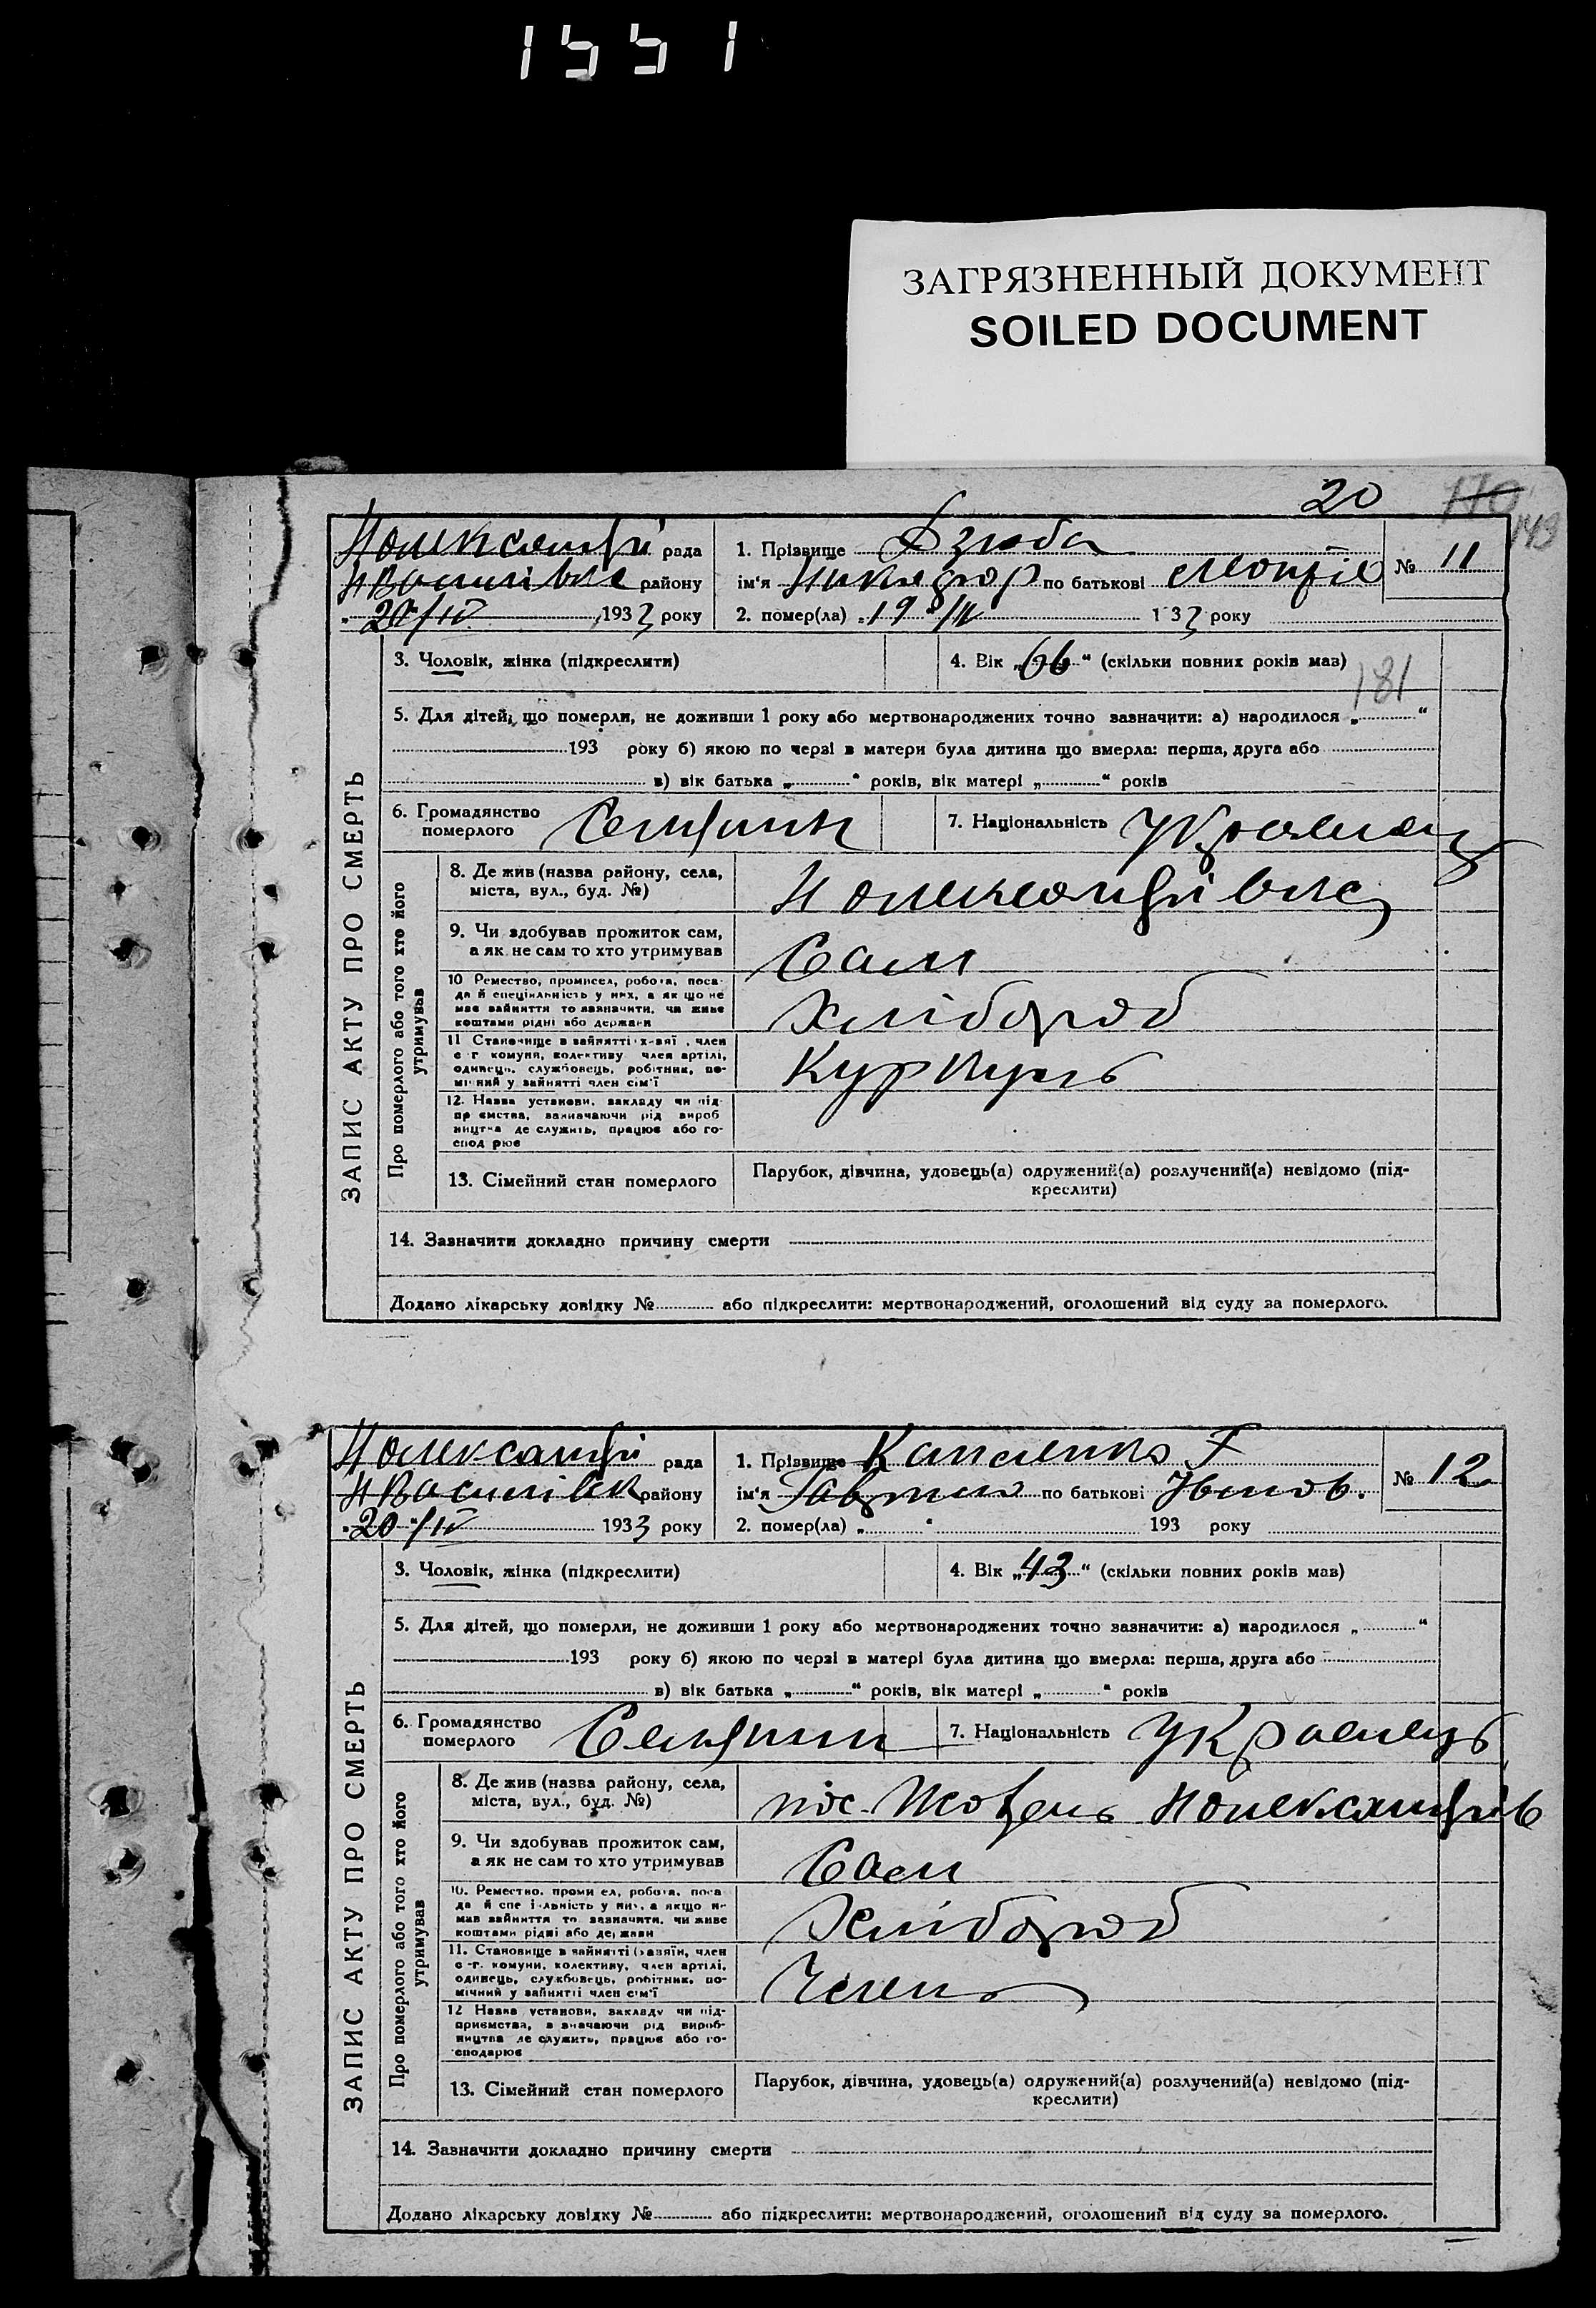 1551
ЗАГРЯЗНЕННЫЙ ДОКУМЕНТ
SOILED DOCUMENT
20
143
ЗАПИС АКТУ ПРО СМЕРТЬ
рада
району
20/IV 1933 року
1. Прізвище Дзюба
ім'я Никифор по батькові
№ 11
2. помер(ла) „19“/IV 1933 року
3. Чоловік, жінка (підкреслити)
4. Вік „66“ (скільки повних років мав)
181
5. Для дітей, що померли, не доживши 1 року або мертвонароджених точно зазначити: а) народилося „ “
193 року б) якою по черзі в матери була дитина що вмерла: перша, друга або
в) вік батька „ “ років, вік матері „ “ років
6. Громадянство померлого Селянин
7. Національність Українец
Про померлого або того хто його утримував
8. Де жив (назва району, села,
міста, вул., буд. №)
9. Чи здобував прожиток сам,
а як не сам то хто утримував
Сам
10 Ремество, промисел, робота, поса-
да й спеціяльність у них, а як що не
має зайняття то зазначити, чи живе
коштами рідні або держави
Хлібороб
11 Становище в зайнятті х-заї , член
с г комуни, колективу член артілі,
одинець, службовець, робітник, по-
мічний у зайнятті член сім'ї
Куркуль
12. Назва установи, закладу чи під-
пр ємства, зазначаючи рід вироб
ництва де служить, працює або го-
спод рює
13. Сімейний стан померлого
Парубок, дівчина, удовець(а) одружений(а) розлучений(а) невідомо (під-
креслити)
14. Зазначити докладно причину смерти
Додано лікарську довідку № або підкреслити: мертвонароджений, оголошений від суду за померлого.
ЗАПИС АКТУ ПРО СМЕРТЬ
рада
району
20/IV 1933 року
1. Прізвище
ім'я по батькові Іванов.
№ 12
2. помер(ла) „ “ 193 року
3. Чоловік, жінка (підкреслити)
4. Вік „43“ (скільки повних років мав)
5. Для дітей, що померли, не доживши 1 року або мертвонароджених точно зазначити: а) народилося „ “
193 року б) якою по черзі в матері була дитина що вмерла: перша, друга або
в) вік батька „ “ років, вік матері „ “ років
6. Громадянство померлого Селянин
7. Національність Українець
Про померлого або того хто його утримував
8. Де жив (назва району, села,
міста, вул., буд. №)
пос. Жовтень
9. Чи здобував прожиток сам,
а як не сам то хто утримував
Сам
10. Ремество, проми ел, робота, поса
да й спе і льність у них, а якщо не
мав зайняття то зазначити, чи живе
коштами рідні або держави
Хлібороб
11. Становище в зайнятті (хазяїн, член
с -г. комуни, колективу, член артілі,
одинець, службовець, робітник, по-
мічний у зайнятті член сім'ї
Член
12 Назва установи, закладу чи під-
приємства, зазначаючи рід вироб-
ництва де служить, працює або го-
сподарює
13. Сімейний стан померлого
Парубок, дівчина, удовець(а) одружений(а) розлучений(а) невідомо (під-
креслити)
14. Зазначити докладно причину смерти
Додано лікарську довідку № або підкреслити: мертвонароджений, оголошений від суду за померлого.